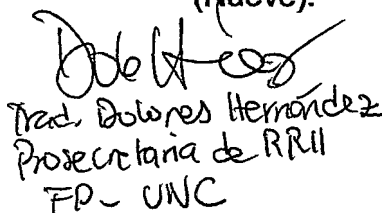 (Nueve).
Trad. Dolores Hernández
Prosecretaria de RRII
FP - UNC